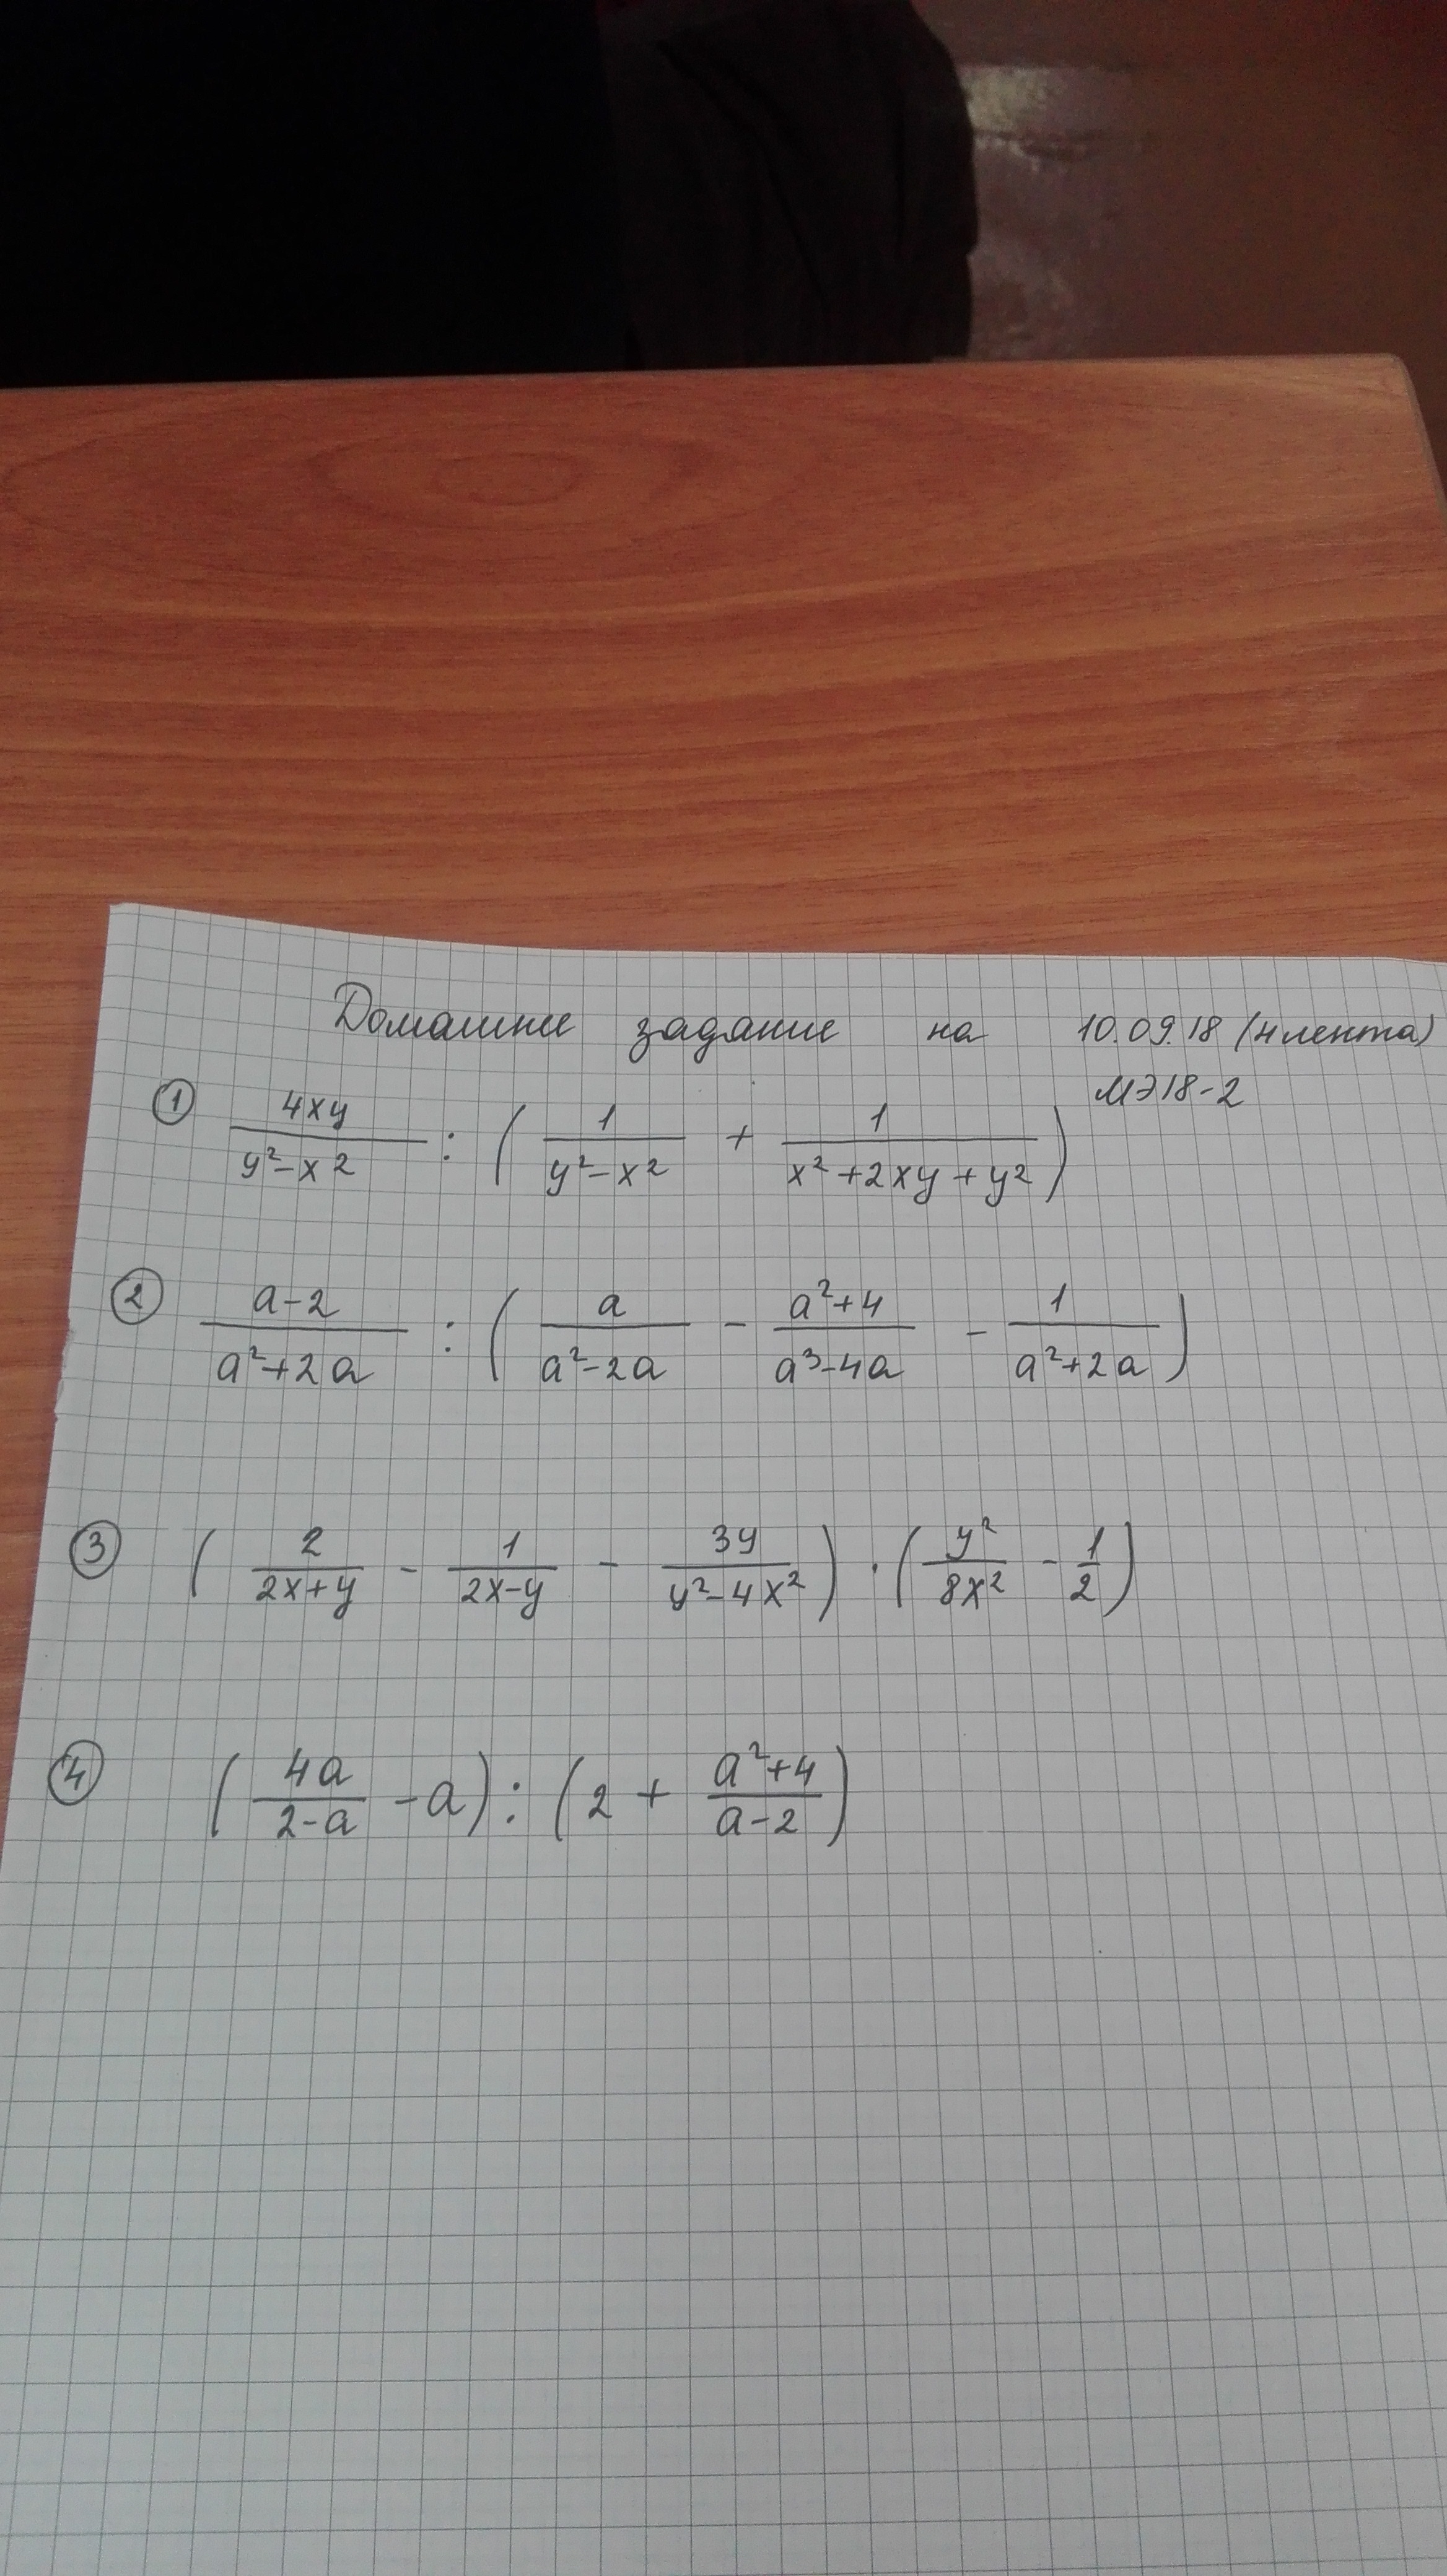 Домашнее задание на 10.09.18 (4 лента)
МЭ18-2
① 4xy/(y²-x²) : (1/(y²-x²) + 1/(x²+2xy+y²))
② (a-2)/(a²+2a) : (a/(a²-2a) - (a²+4)/(a³-4a) - 1/(a²+2a))
③ (2/(2x+y) - 1/(2x-y) - 3y/(y²-4x²)) · (y²/8x² - 1/2)
④ (4a/(2-a) - a) : (2 + (a²+4)/(a-2))